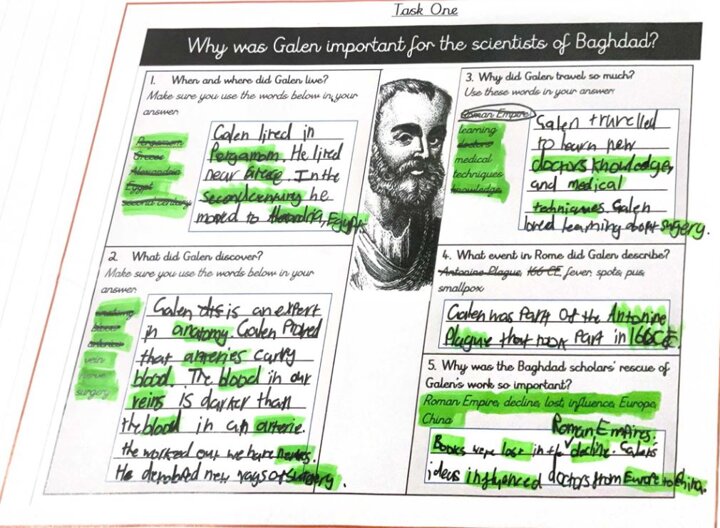 Task One
Why was Galen important for the scientists of Baghdad?
1. When and where did Galen live?
Make sure you use the words below in your
answer
Pergamom
Greece
Alexandria
Egypt
second century
Galen lived in
Pergamom. He lived
near Greece. In the
second century he
moved to Alexandria, Egypt.
2 What did Galen discover?
Make sure you use the words below in your
answer
anatomy
blood
arteries
vein
nerve
surgery
Galen is an expert
in anatomy. Galen Proved
that arteries carry
blood. The blood in our
veins is darker than
the blood in an arterie.
He worked out we have nerves.
He devoloped new ways of surgery.
3. Why did Galen travel so much?
Use these words in your answer
Roman Empire
learning
doctors
medical
techniques
knowledge
Galen travelled
to learn new
doctors knowledge,
and medical
techniques. Galen
loved learning about surgery.
4. What event in Rome did Galen describe?
Antonine Plague, 166 CE, fever, spots, pus,
smallpox
Galen was Part of the Antonine
Plague that took Part in 166CE
5. Why was the Baghdad scholars' rescue of
Galen's work so important?
Roman Empire, decline, lost, influence, Europe,
China
Roman Empires.
Books were lost in the decline. Galens
ideas influenced doctors from Europe to China.